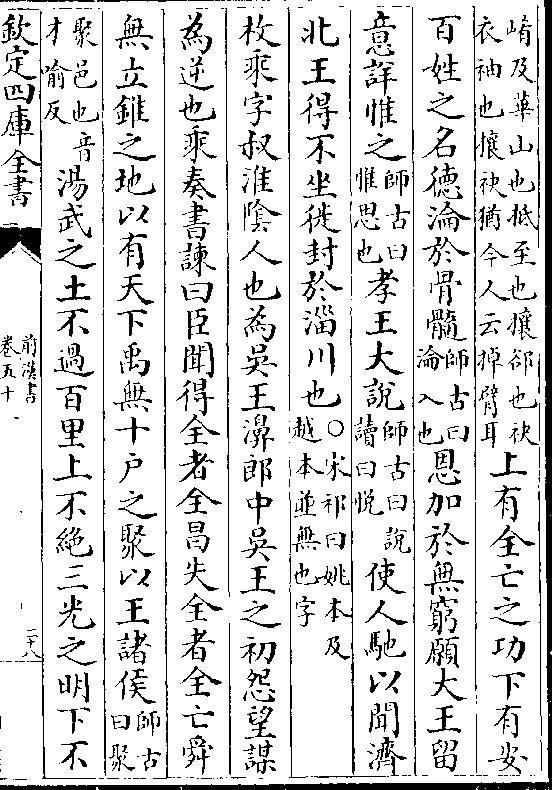 崤及華山也抵至也攘卻也袂
衣袖也攘袂猶今人云掉臂耳
上有全亡之功下有安
百姓之名德淪於骨髓
師古曰
淪入也
恩加於無窮願大王留
意詳惟之
師古曰
惟思也
孝王大說
師古曰說
讀曰悅
使人馳以聞濟
北王得不坐徙封於淄川也
○宋祁曰姚本及
越本並無也字
枚乘字叔淮陰人也為吳王濞郎中吳王之初怨望謀
為逆也乘奏書諫曰臣聞得全者全昌失全者全亡舜
無立錐之地以有天下禹無十户之聚以王諸侯
師古
曰聚
聚邑也音
才喻反
湯武之土不過百里上不絶三光之明下不
欽定四庫全書
前漢書
卷五十一
二十八